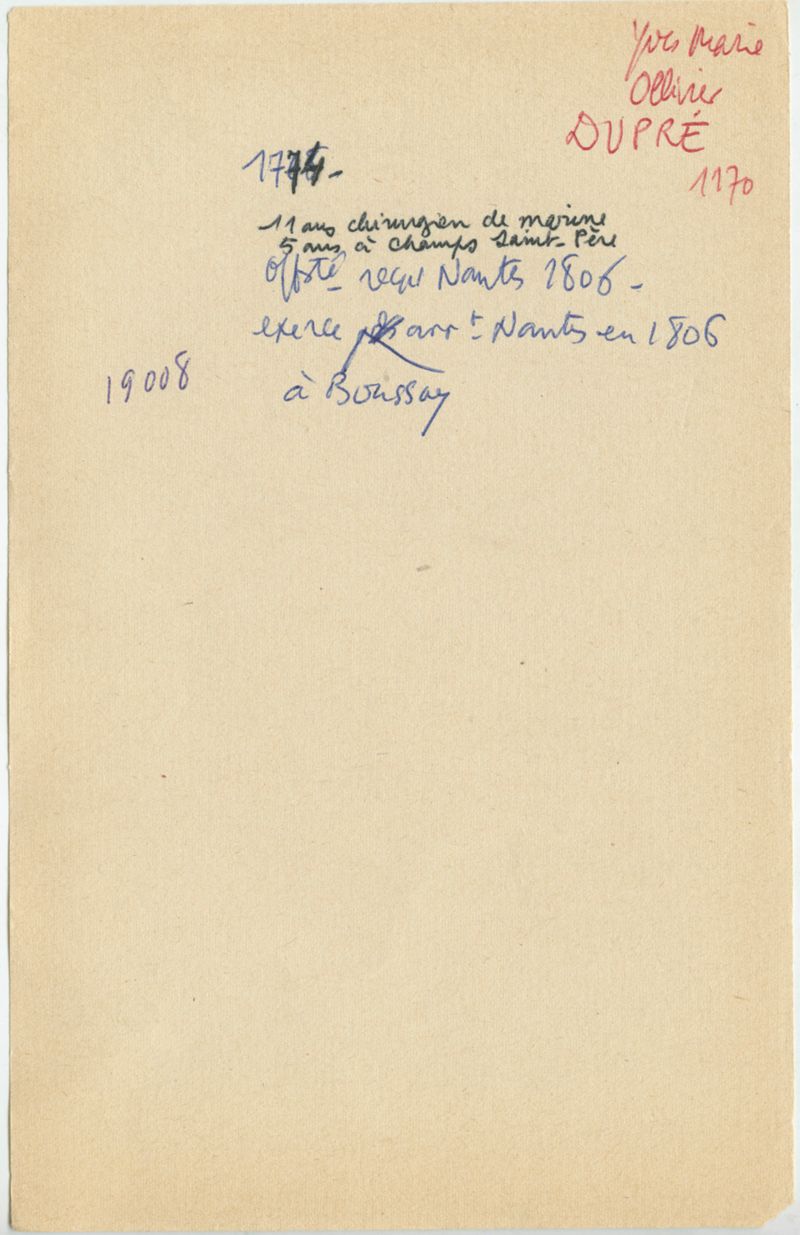 Yves Marie
Ollivier
DUPRÉ
1170
1774-
11 ans chirurgien de marine
5 ans à Champs Saint-Père
Offsté reçu Nantes 1806-
exerce arrt Nantes en 1806
19008
à Boussay